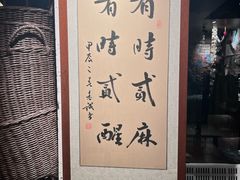 有時貳麻
有時貳醒
甲辰之